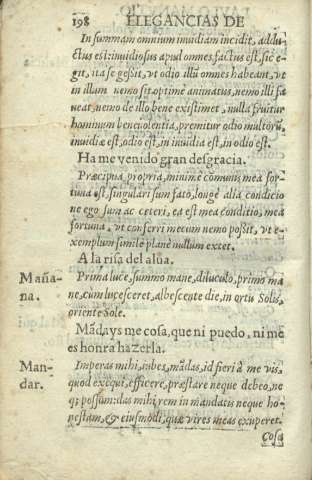 198 ELEGANCIAS DE
In summam omnium inuidiam incidit, addu-
ctus est: inuidiosus apud omnes factus est, sic e-
git, ita se gessit, vt odio illi omnes habeant, vt
in illum nemo sit optime animatus, nemo illi fa
ueat, nemo de illo bene existimet, nulla fruitur
hominum beneuolentia, premitur odio multorũ,
inuidiæ est, odio est, in inuidia est, in odio est.
Ha me venido gran desgracia.
Præcipua, propria, minimè comunis mea for-
tuna est, singulari sum fato, longè alia condicio
ne ego sum ac ceteri, ea est mea conditio, mea
fortuna, vt conferri mecum nemo possit, vt e-
xemplum simile planè nullum extet.
A la risa del alua.
Maña-
na.
Prima luce, summo mane, diluculo, primo ma
ne, cum lucesceret, albescente die, in ortu Solis,
oriente Sole.
Mãdays me cosa, que ni puedo, ni me
es honra hazerla.
Man-
dar.
Imperas mihi, iubes, mãdas, id fieri à me vis,
quod exequi, efficere, præstare neque debeo, ne
q; possum: das mihi rem in mandatis neque ho-
nestam, & eiusmodi, quæ vires meas exuperet.
Cosa